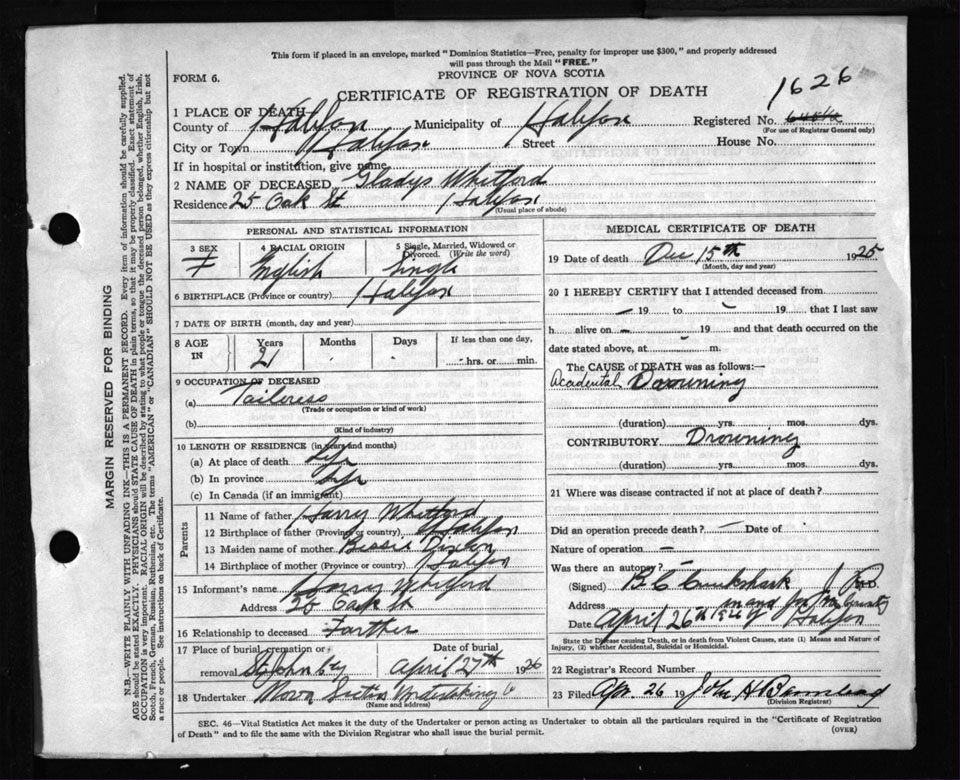 This form if placed in an envelope, marked "Dominion Statistics—Free, penalty for improper use $300," and properly addressed
will pass through the Mail "FREE."
FORM 6.
PROVINCE OF NOVA SCOTIA
1626
CERTIFICATE OF REGISTRATION OF DEATH
1 PLACE OF DEATH
County of Halifax Municipality of Halifax Registered No.
(For use of Registrar General only)
City or Town Halifax Street House No.
If in hospital or institution, give name
2 NAME OF DECEASED Gladys Whitford
Residence 25 Oak St Halifax
(Usual place of abode)
PERSONAL AND STATISTICAL INFORMATION
3 SEX 4 RACIAL ORIGIN 5 Single, Married, Widowed or Divorced. (Write the word)
F English Single
6 BIRTHPLACE (Province or country) Halifax
7 DATE OF BIRTH (month, day and year)
8 AGE IN Years Months Days If less than one day,
21 hrs. or min.
9 OCCUPATION OF DECEASED
(a) Tailoress
(Trade or occupation or kind of work)
(b)
(Kind of industry)
10 LENGTH OF RESIDENCE (in years and months)
(a) At place of death Life
(b) In province Life
(c) In Canada (if an immigrant)
Parents
11 Name of father Harry Whitford
12 Birthplace of father (Province or country) Halifax
13 Maiden name of mother Bessie
14 Birthplace of mother (Province or Country) Halifax
15 Informant's name Harry Whitford
Address 25 Oak St
16 Relationship to deceased Farther
17 Place of burial, cremation or removal St John Cey Date of burial April 27th 1926
18 Undertaker Nova Scotia Undertaking Co
(Name and address)
MEDICAL CERTIFICATE OF DEATH
19 Date of death Dec 15th 1925
(Month, day and year)
20 I HEREBY CERTIFY that I attended deceased from
— 19 to — 19 that I last saw
h alive on — 19 and that death occurred on the
date stated above, at m.
The CAUSE of DEATH was as follows:—
Acadental Drowning
(duration) yrs. mos. dys.
CONTRIBUTORY Drowning
(duration) yrs. mos. dys.
21 Where was disease contracted if not at place of death?
Did an operation precede death? — Date of
Nature of operation —
Was there an autopsy? —
(Signed) M.D.
Address
Date April 26th 1926 Halifax
State the Disease causing Death, or in death from Violent Causes, state (1) Means and Nature of
Injury, (2) whether Accidental, Suicidal or Homicidal.
22 Registrar's Record Number
23 Filed Apr. 26 19 John H
(Division Registrar)
SEC. 46—Vital Statistics Act makes it the duty of the Undertaker or person acting as Undertaker to obtain all the particulars required in the "Certificate of Registration
of Death" and to file the same with the Division Registrar who shall issue the burial permit.
(OVER)
MARGIN RESERVED FOR BINDING
N.B.—WRITE PLAINLY WITH UNFADING INK—THIS IS A PERMANENT RECORD. Every item of information should be carefully supplied.
AGE should be stated EXACTLY. PHYSICIANS should STATE CAUSE OF DEATH in plain terms, so that it may be properly classified. Exact statement of
OCCUPATION is very important. RACIAL ORIGIN will be described by stating to what people or tongue the deceased person belonged, whether English, Irish,
Scotch, French, German, Russian, Ruthenian, etc. The terms "AMERICAN" or "CANADIAN" SHOULD NOT BE USED as they express citizenship but not
a race or people. See instructions on back of Certificate.